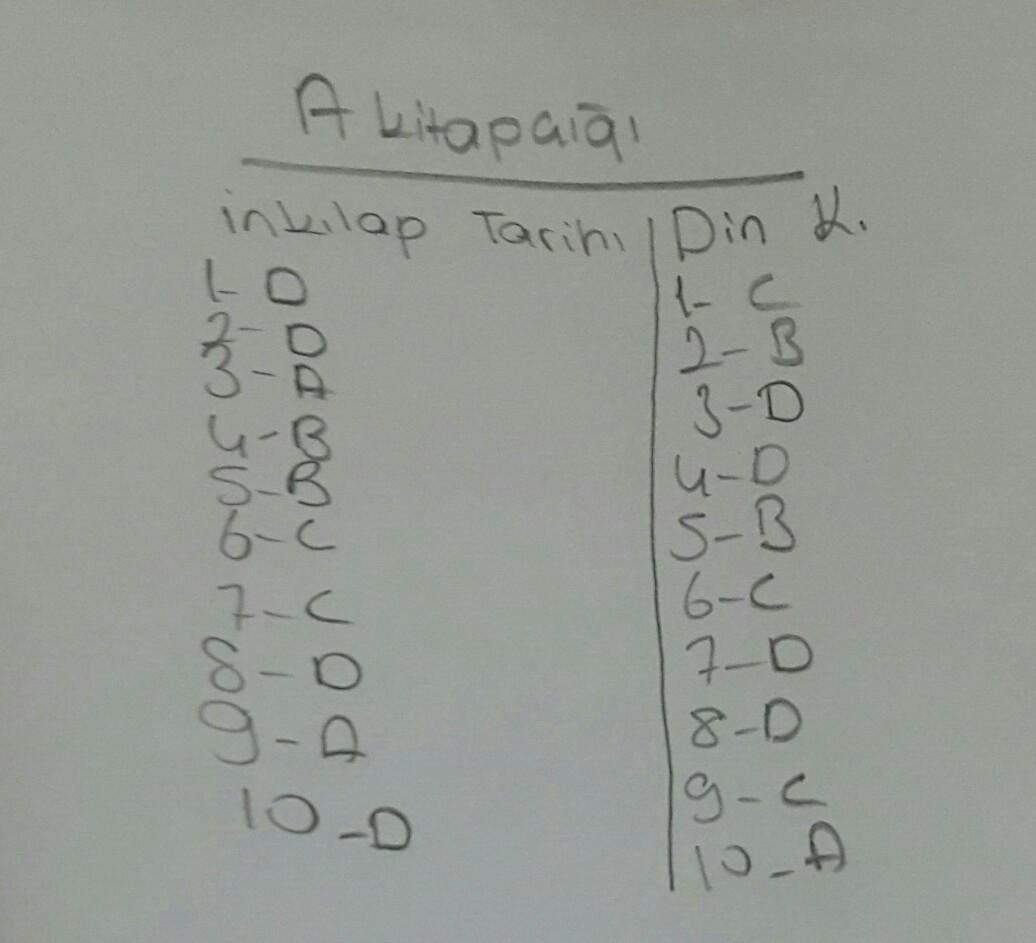 A kitapçığı
inkılap Tarihi
1- D
2- D
3- A
4- B
5- B
6- C
7- C
8- D
9- A
10-D
Din K.
1- C
2- B
3-D
4-D
5-B
6-C
7-D
8-D
9-C
10-A